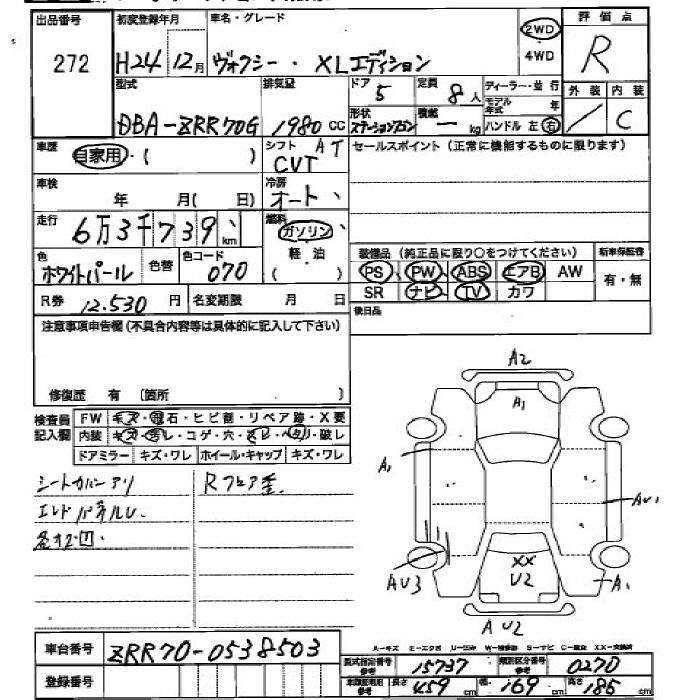 出品番号 初度登録年月 車名・グレード 評価点
272 H24 12月 ヴォクシー・XLエディション 2WD 4WD R
型式 排気量 ドア 定員 ディーラー・並行 外装 内装
DBA-ZRR70G 1980 CC 5 8人 モデル年式 年 / C
形状 ステーションワゴン 積載 ー kg ハンドル 左 右
車歴 自家用・( ) シフト AT CVT セールスポイント(正常に機能するものに限ります)
車検 年 月( 日) 冷房 オート
走行 6万3千739 km 燃料 ガソリン 軽油 ( )
色 ホワイトパール 色替 色コード 070
装備品(純正品に限り○をつけてください) 新車保証書
PS PW ABS エアB AW 有・無
SR ナビ TV カワ
R券 12.530 円 名変期限 月 日
後日品
注意事項申告欄(不具合内容等は具体的に記入して下さい)
修復歴 有 〔箇所 〕
検査員記入欄 FW キズ・飛石・ヒビ割・リペア跡・X要
内装 キズ・汚レ・コゲ・穴・ヌビ・ヘタリ・破レ
ドアミラー キズ・ワレ ホイール・キャップ キズ・ワレ
シートカバーアリ Rフロア歪.
エンドパネルU.
各キズ凹
A2
A1
A1
AU1
AU3
XX
U2
A1
AU2
A-キズ E-エクボ U-凹ミ W-補修跡 S-サビ C-腐食 XX-交換済
車台番号 ZRR70-0538503
登録番号
型式指定番号 参考 15737 類別区分番号 参考 0270
車検証明用 参考 長さ 459 cm 幅 169 cm 高さ 185 cm